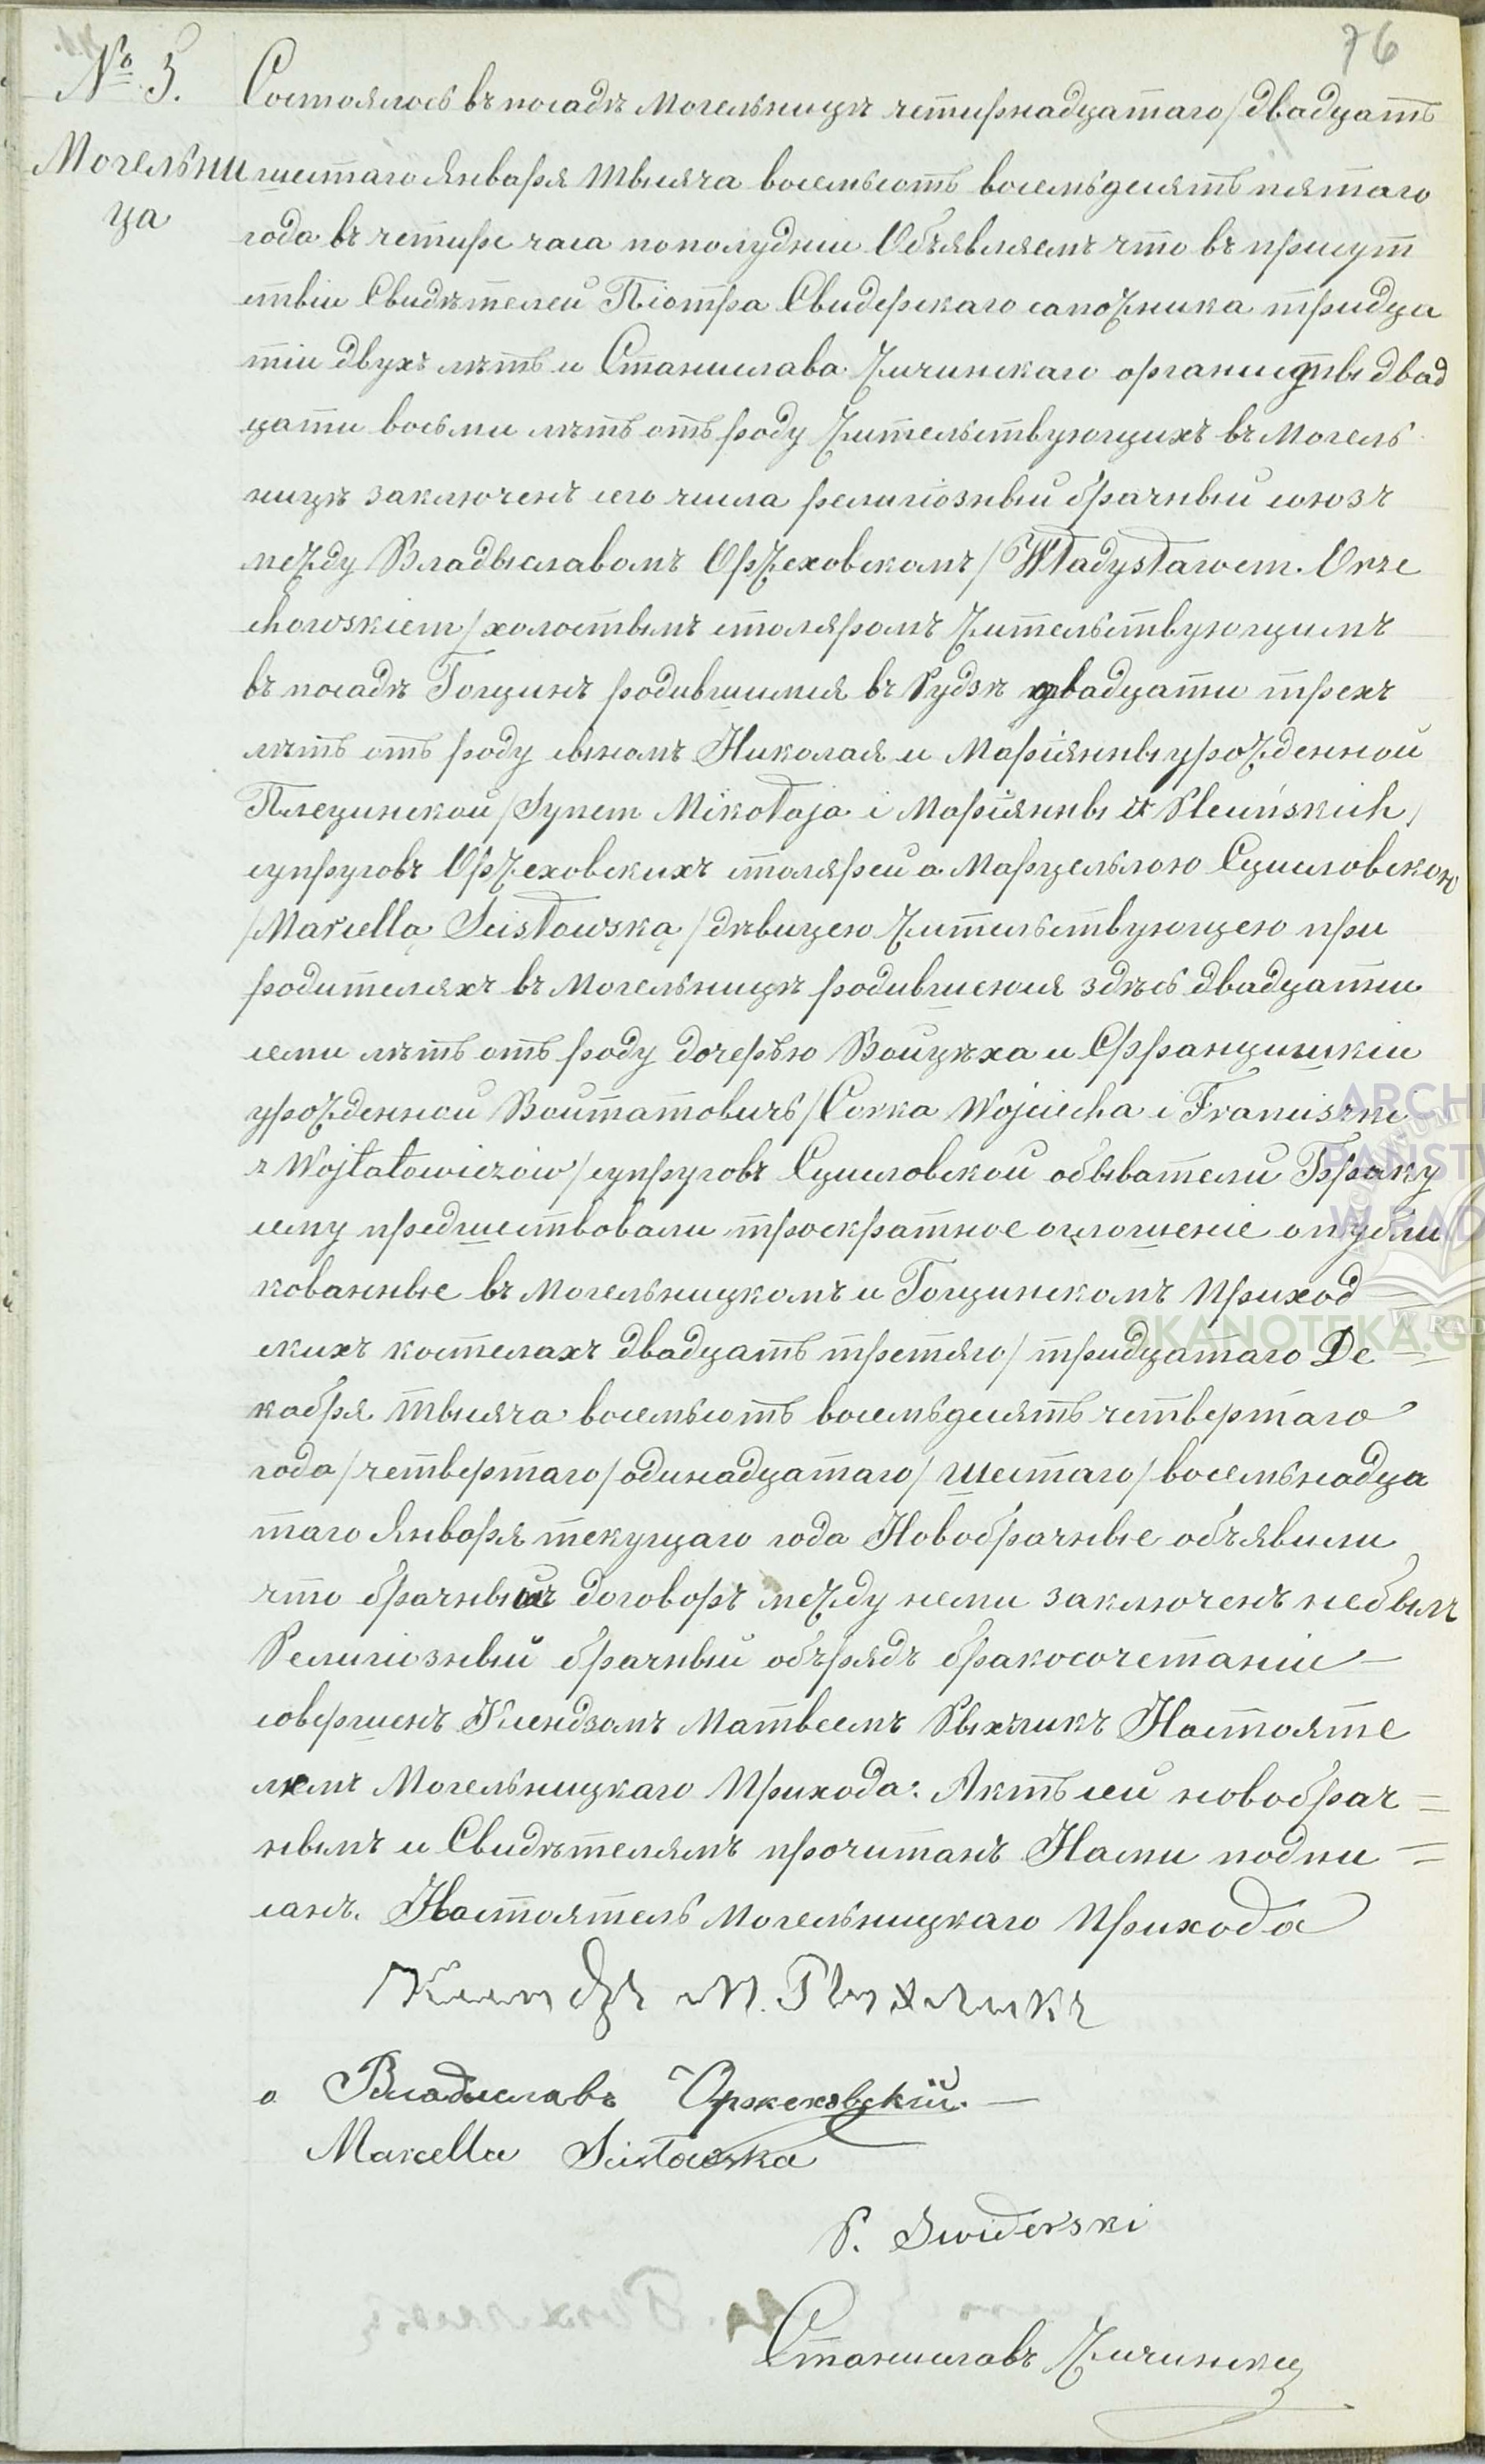 76
№ 5.
Могельни
ца
Состоялось въ посадѣ Могельницѣ четирнадцатаго / двадцать
шестаго Января тысяча восемьсотъ восемьдесятъ пятаго
года въ четире часа пополуднии Объявляемъ что въ присут
ствіи Свидѣтелей Піотра Свидерскаго сапожника тридца
тіи двухъ лѣтъ и Станислава Жичинскаго органисты двад
цати восьми лѣтъ отъ роду жительствующихъ въ Могель
ницѣ заключенъ сего числа религіозный брачный союзъ
между Владыславомъ Оржеховскомъ / Władysławem Orze
chowskiem / холостымъ столяромъ жительствующимъ
въ посадѣ Гощинѣ родившимся въ Рудзѣ двадцати трехъ
лѣтъ отъ роду сыномъ Николая и Маріянны урожденной
Плецинской / Synem Mikołaja i Маріянны z Plecińskich /
супруговъ Оржеховскихъ столярей а Марцельлою Сцисловскою
/ Marcellą Scisłowską / дѣвицею жительствующею при
родителяхъ въ Могельницѣ родившеюся здѣсь двадцати
семи лѣтъ отъ роду дочерью Войцѣха и Франчишкіи
урожденной Войтатовичъ / Corka Wojciecha i Franciszki
z Wojtatowiczów / супруговъ Сцисловской обыватели Браку
сему предшествовали троекратное оглошеніе опубли
кованные въ Могельницкомъ и Гощинскомъ Приход
скихъ костелахъ двадцать третяго / тридцатаго Де
кабря тысяча восемьсотъ восемьдесятъ четвертаго
года / четвертаго / одинадцатаго / шестаго / восемьнадца
таго Января текущаго года Новобрачные объявили
что брачный договоръ между неми заключенъ небылъ
Религіозный брачный обърядъ бракосочетаніи
совершенъ Ксендзомъ Матвеемъ Рыхликъ Настояте
лемъ Могельницкаго Прихода. Актъ сей новобрач
нымъ и Свидѣтелямъ прочитанъ Нами подпи
санъ. Настоятель Могельницкаго Прихода
Ксендзъ М. Рыхликъ
Владыславъ Оржеховскій.
Marcella Scisłowska
P. Swiderski
Станиславъ Жичинскій